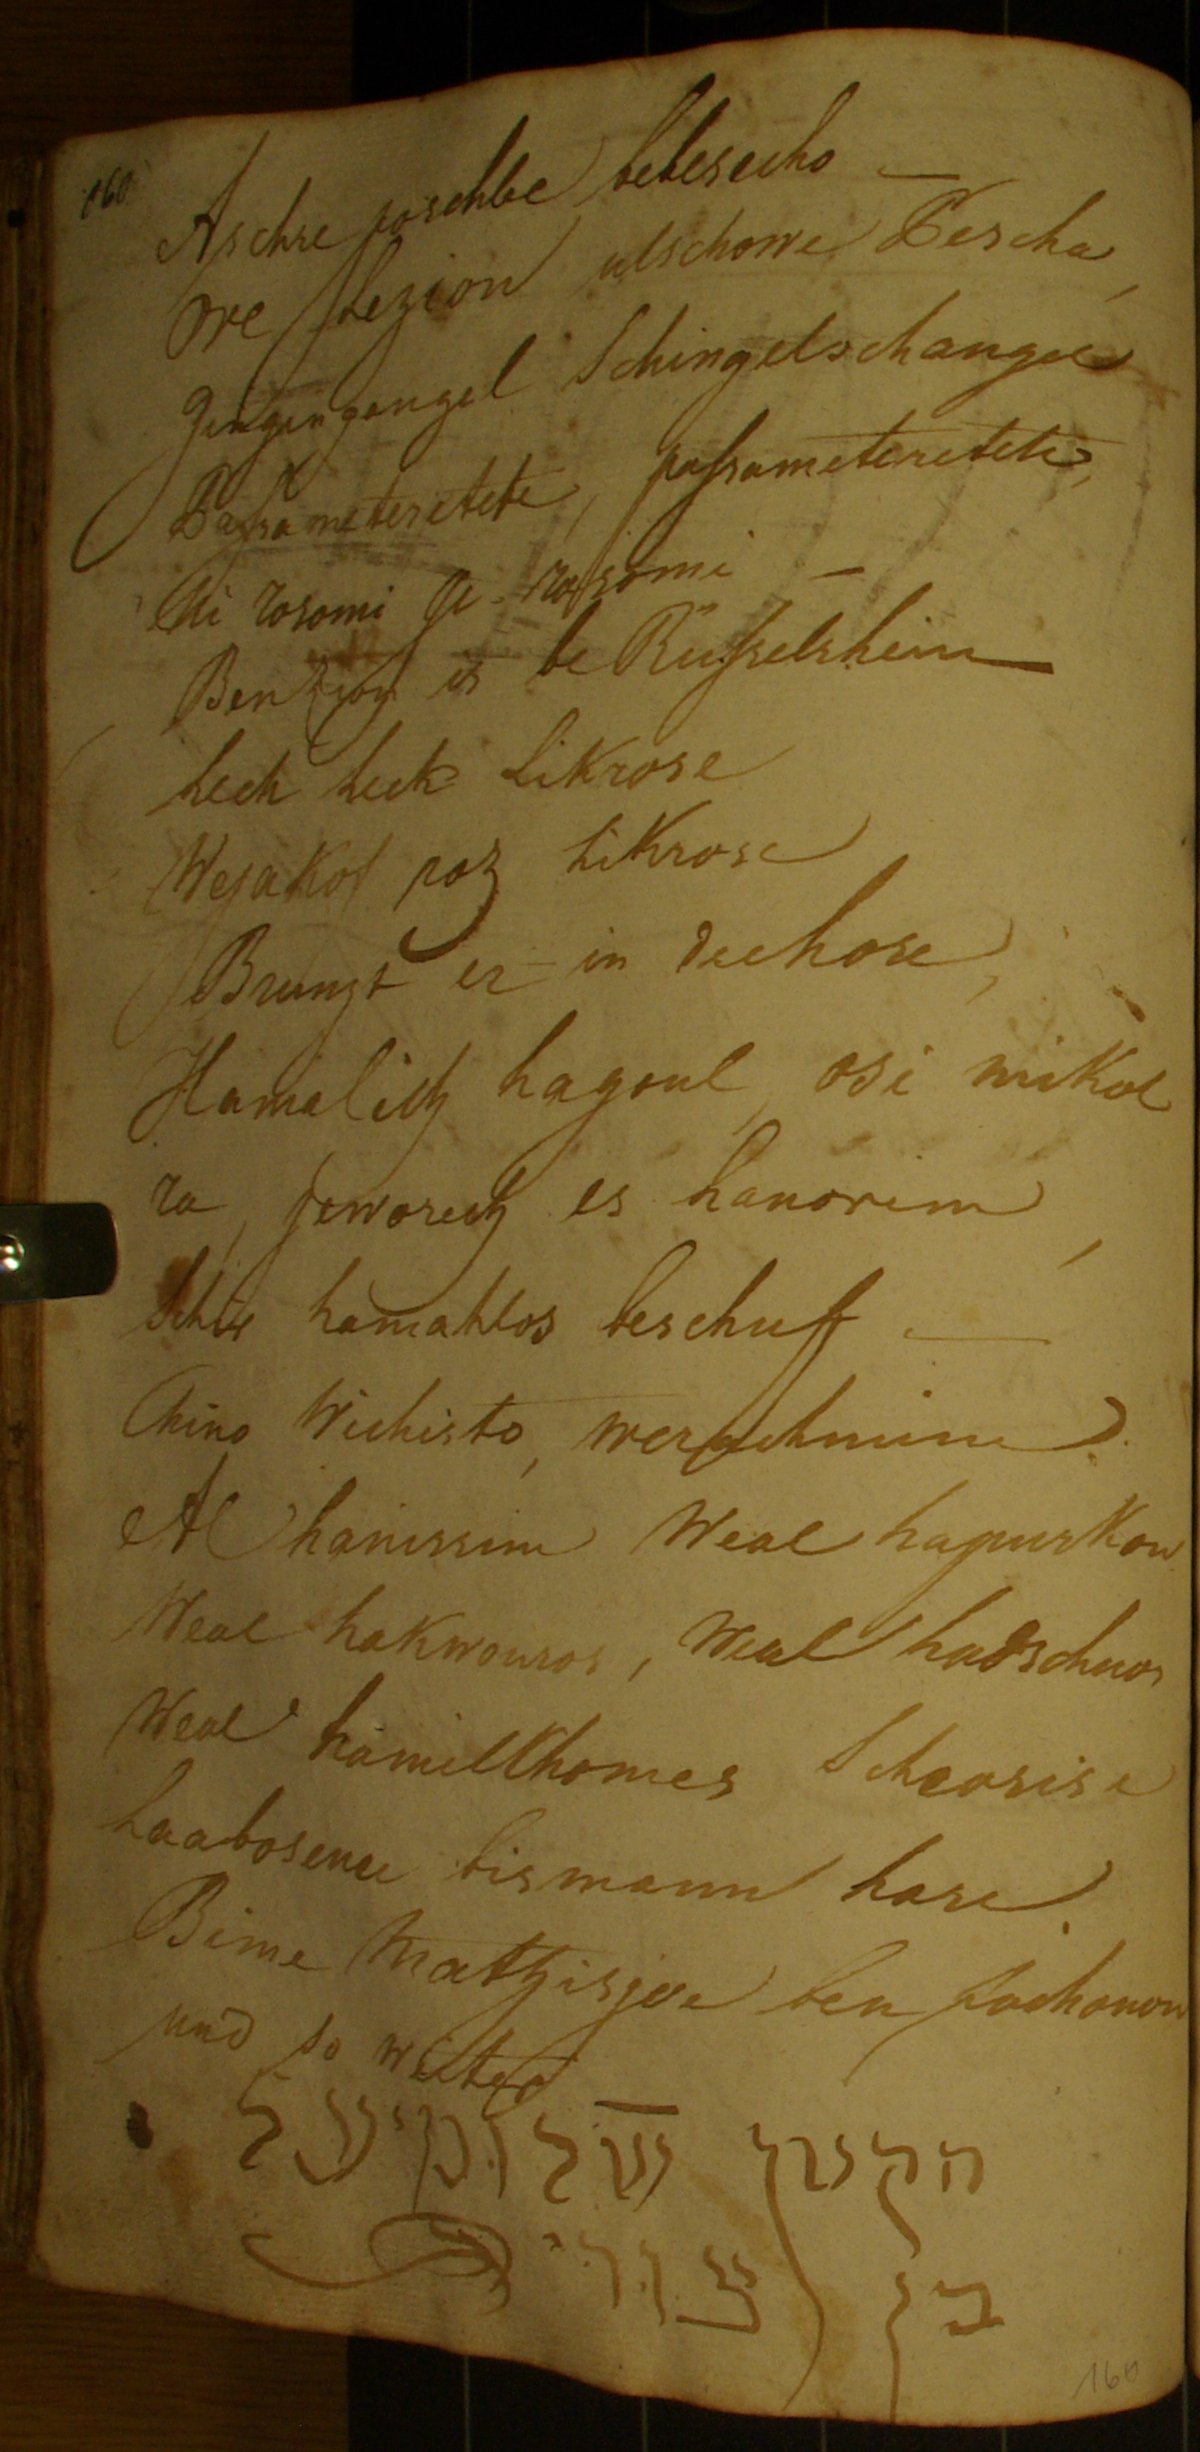 160
Aschre joschbe bebesecho —
Ove lezion ulschowe Pescha,
gingengangel Schingelschangel
Passameteretete, passameteretete,
Ai rosomi a rosomi —
Benzion is be Rüsselsheim
Lech leck likrose
Wejakof poz likrose
Brunzt er in dee hose,
Hamalich hagoul osi mikol
ra, jeworech es hanorim,
hamahlos beschuft —
Chino Wichisto, werachmim
Al hanissim Weal hapurkon
Weal hakwouros, Weal hadschuos
Weal hamillchomes Scheosise
laabosenee bismann hase.
Bime Mattisjoe ben Jochonon
und so weiter
הקטן
בן
160